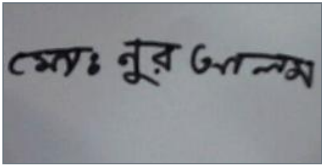 মোঃ নুর আলম